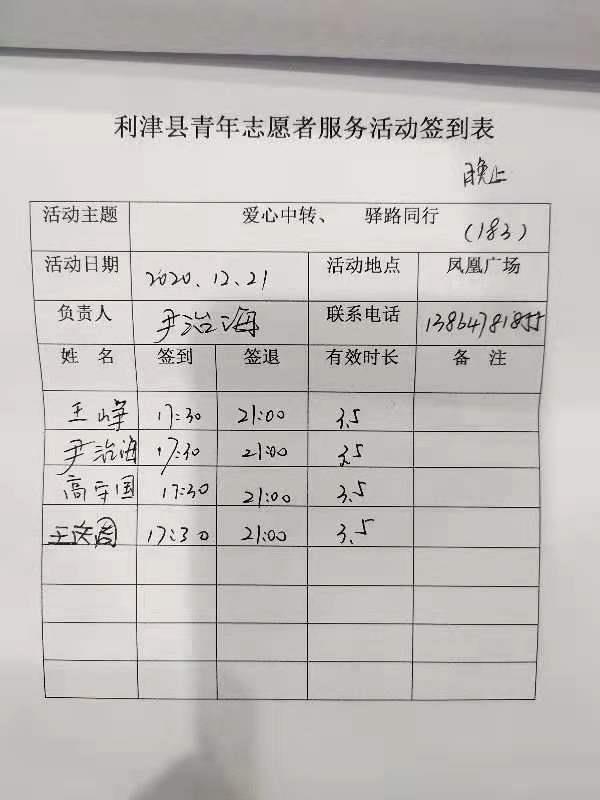 利津县青年志愿者服务活动签到表
晚上
活动主题 爱心中转、 驿路同行 (183)
活动日期 2020.12.21 活动地点 凤凰广场
负责人 尹治海 联系电话 13864781855
姓 名 签到 签退 有效时长 备 注
王峥 17:30 21:00 3.5
尹治海 17:30 21:00 3.5
高守国 17:30 21:00 3.5
王 17:30 21:00 3.5